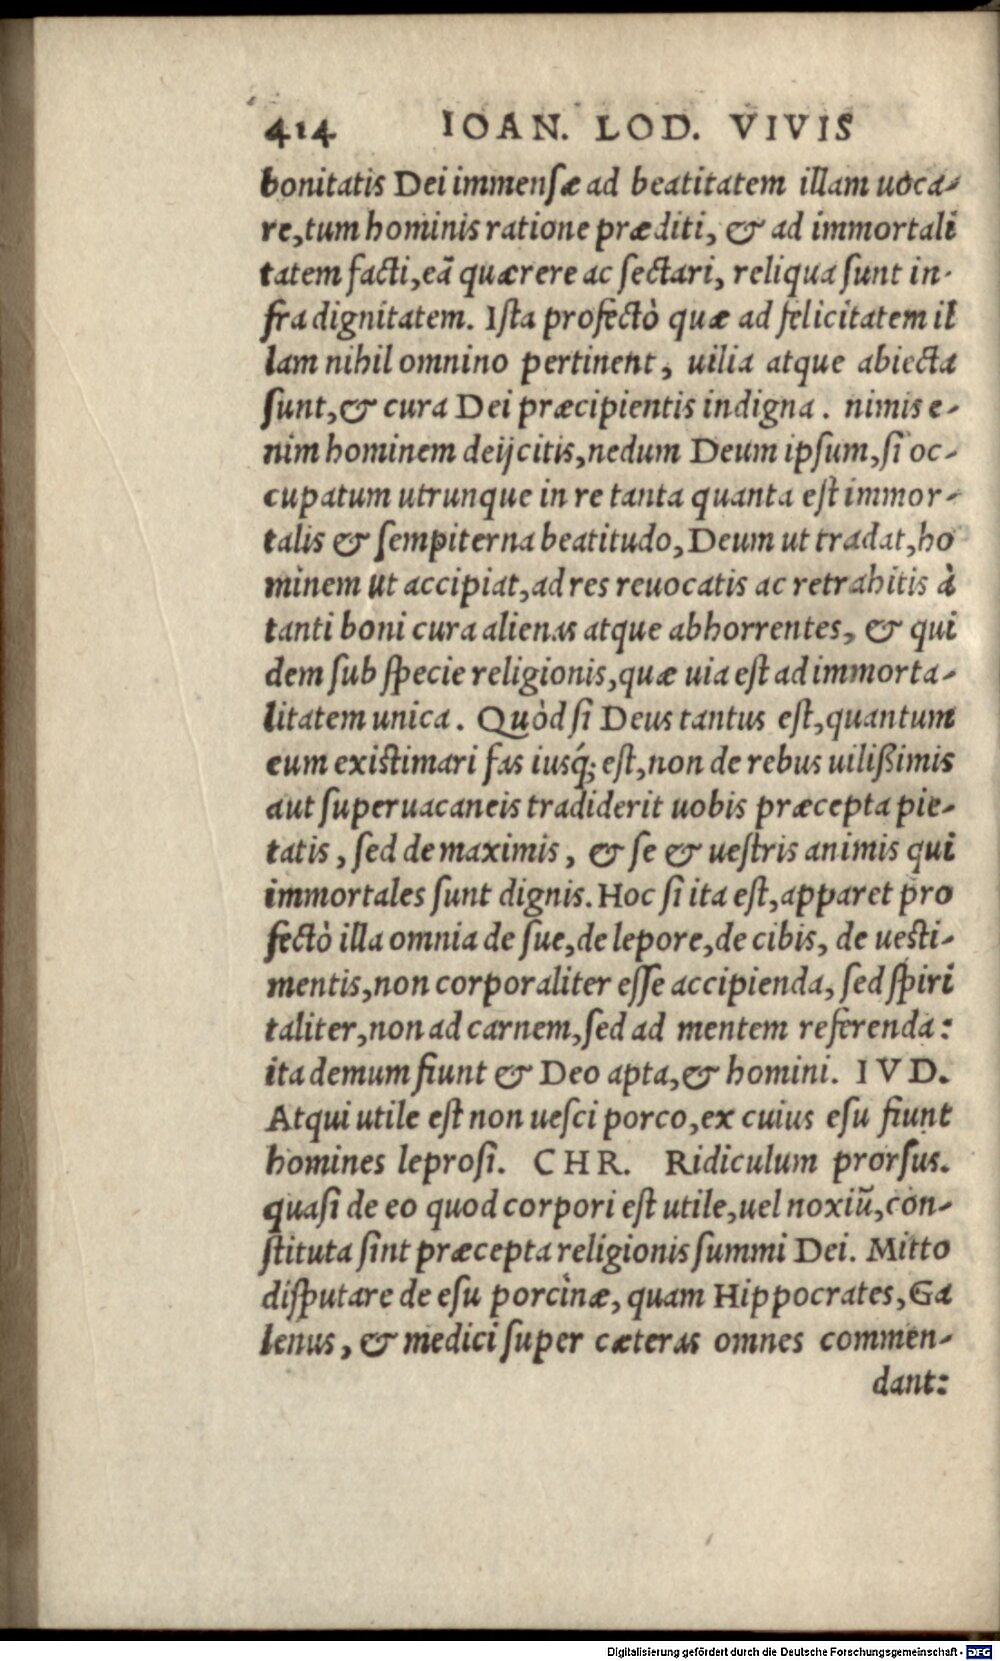 414 IOAN. LOD. VIVIS
bonitatis Dei immensæ ad beatitatem illam uoca-
re, tum hominis ratione præditi, & ad immortali
tatem facti, eã quærere ac sectari, reliqua sunt in-
fra dignitatem. Ista profectò quæ ad felicitatem il
lam nihil omnino pertinent, uilia atque abiecta
sunt, & cura Dei præcipientis indigna. nimis e-
nim hominem deijcitis, nedum Deum ipsum, si oc-
cupatum utrunque in re tanta quanta est immor-
talis & sempiterna beatitudo, Deum ut tradat, ho
minem ut accipiat, ad res reuocatis ac retrahitis à
tanti boni cura alienas atque abhorrentes, & qui
dem sub specie religionis, quæ uia est ad immorta-
litatem unica. Quòd si Deus tantus est, quantum
eum existimari fas iusq́; est, non de rebus uilißimis
aut superuacaneis tradiderit uobis præcepta pie-
tatis, sed de maximis, & se & uestris animis qui
immortales sunt dignis. Hoc si ita est, apparet pro
fectò illa omnia de sue, de lepore, de cibis, de uesti-
mentis, non corporaliter esse accipienda, sed spiri
taliter, non ad carnem, sed ad mentem referenda:
ita demum fiunt & Deo apta, & homini. IVD.
Atqui utile est non uesci porco, ex cuius esu fiunt
homines leprosi. CHR. Ridiculum prorsus.
quasi de eo quod corpori est utile, uel noxiũ, con-
stituta sint præcepta religionis summi Dei. Mitto
disputare de esu porcinæ, quam Hippocrates, Ga
lenus, & medici super cæteras omnes commen-
dant:
Digitalisierung gefördert durch die Deutsche Forschungsgemeinschaft - DFG